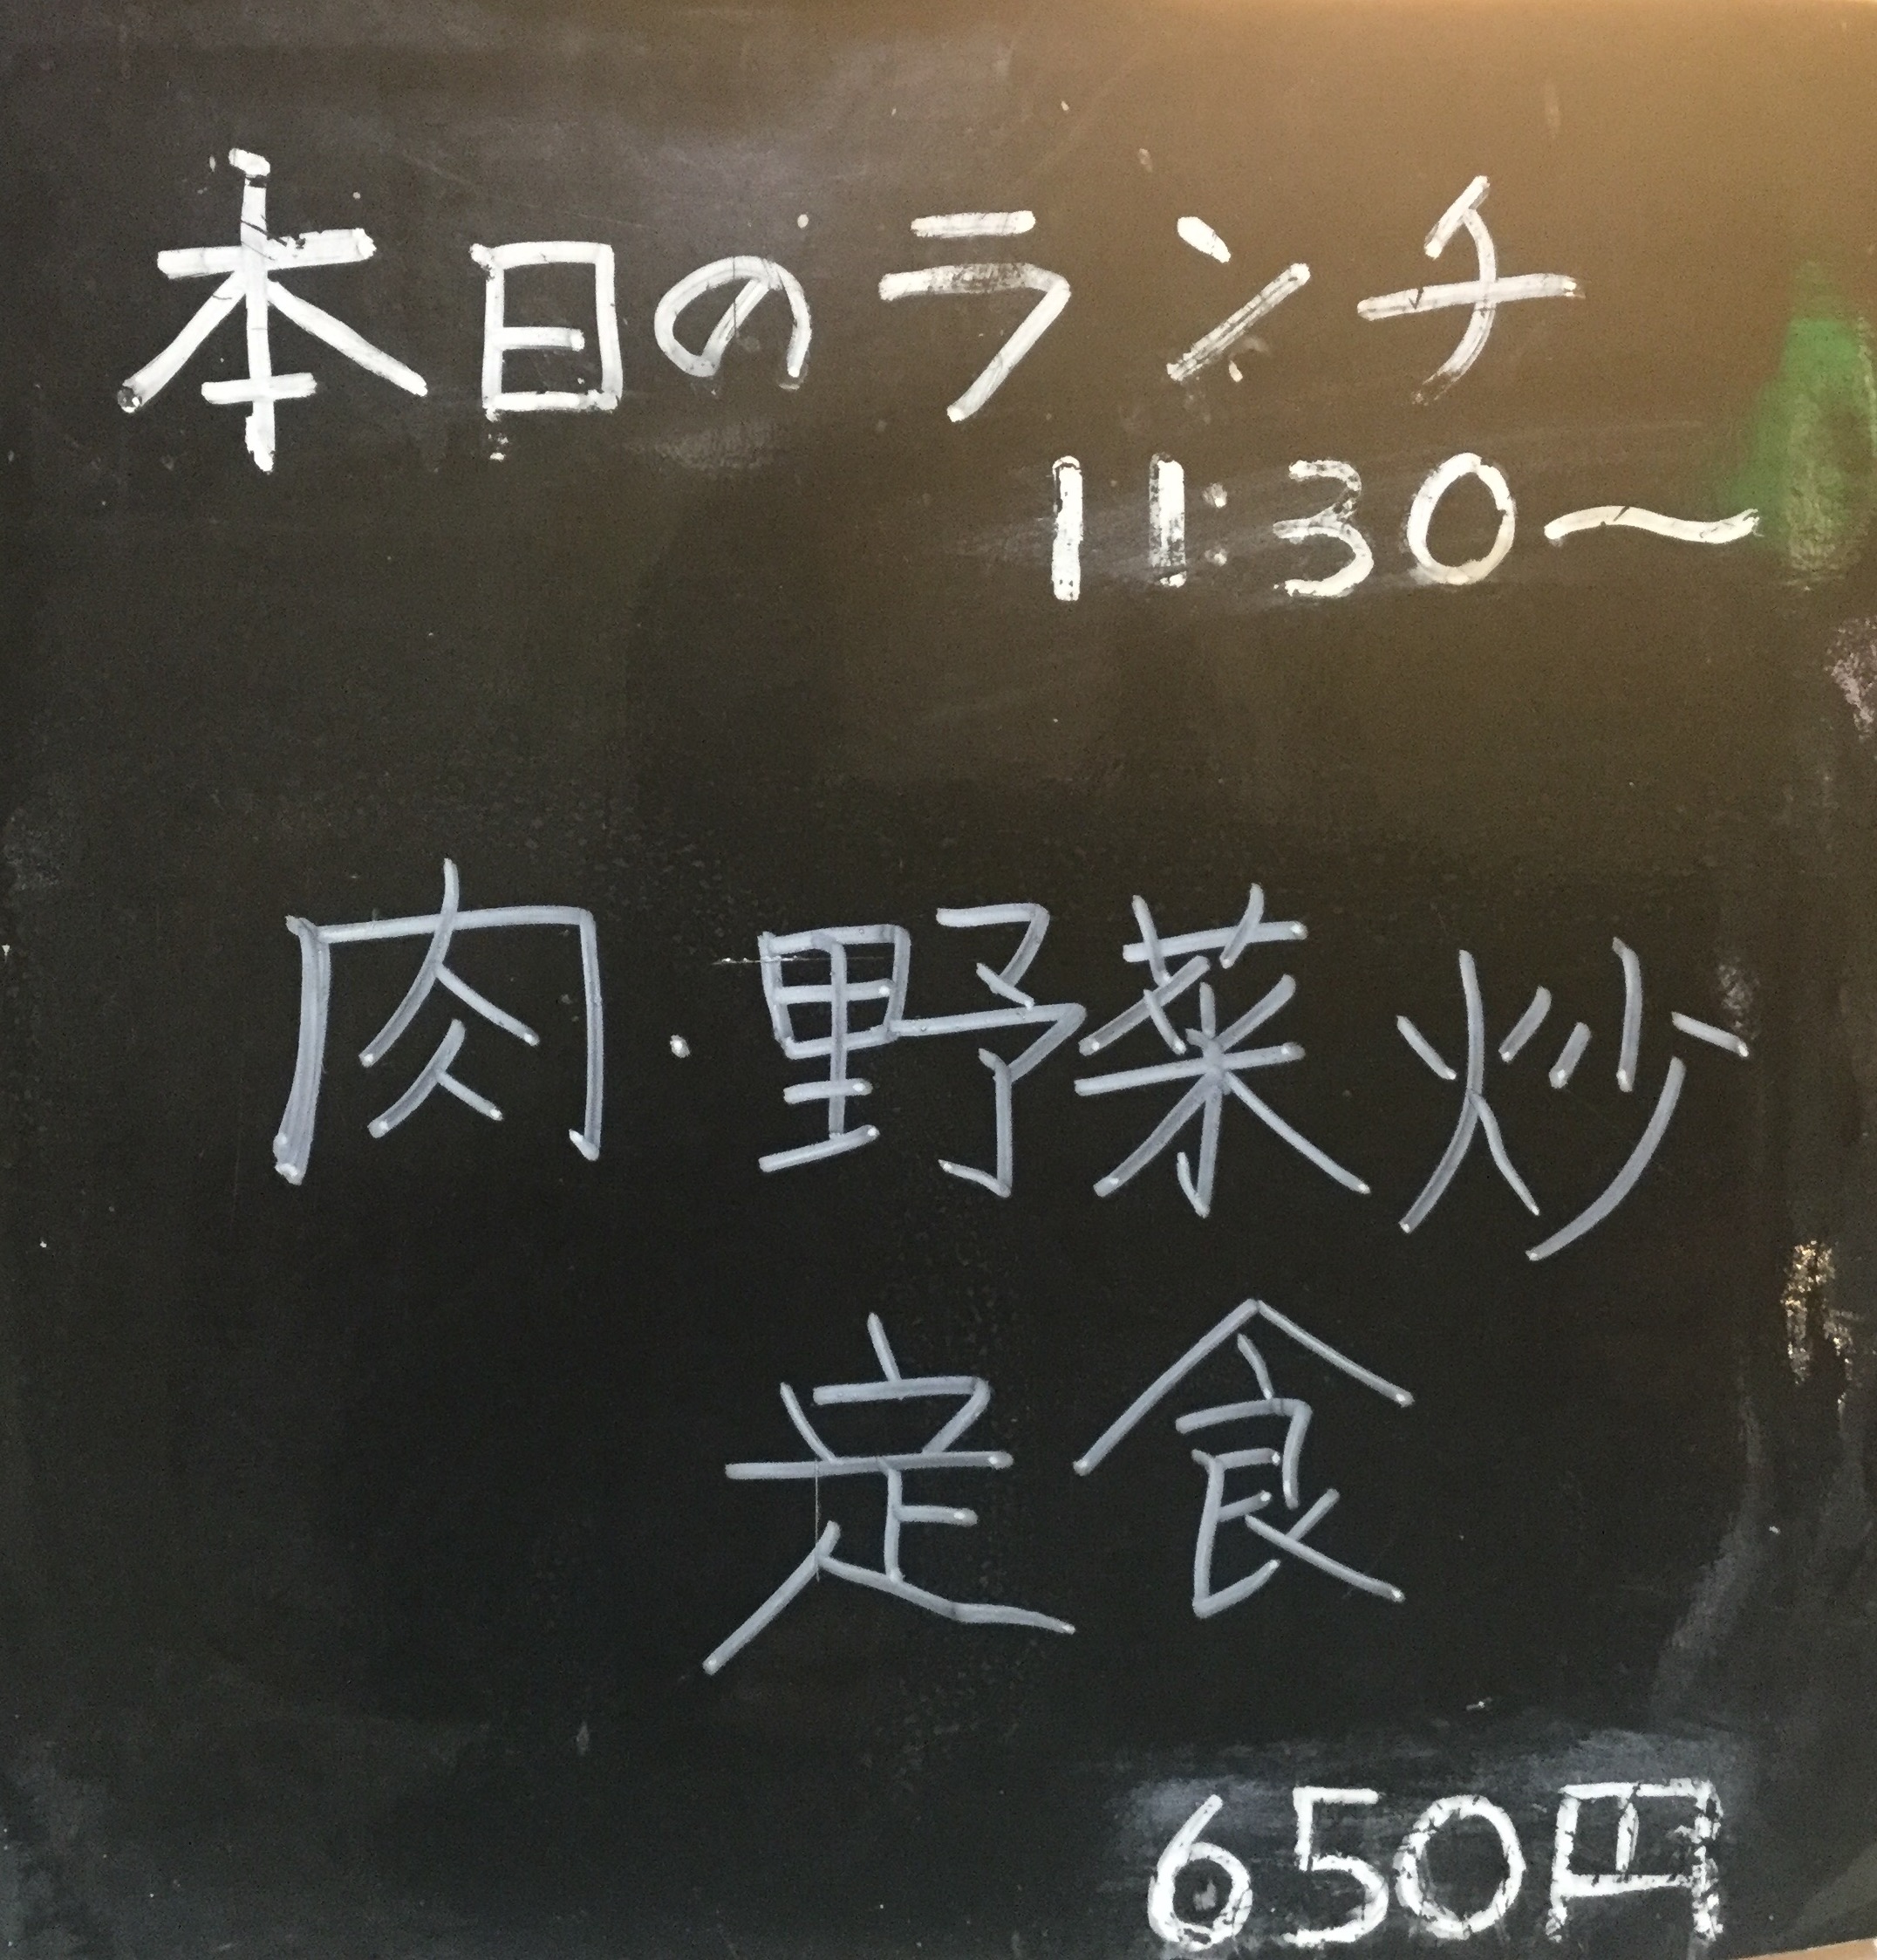 本日のランチ
11:30〜
肉・野菜炒
定食
650円